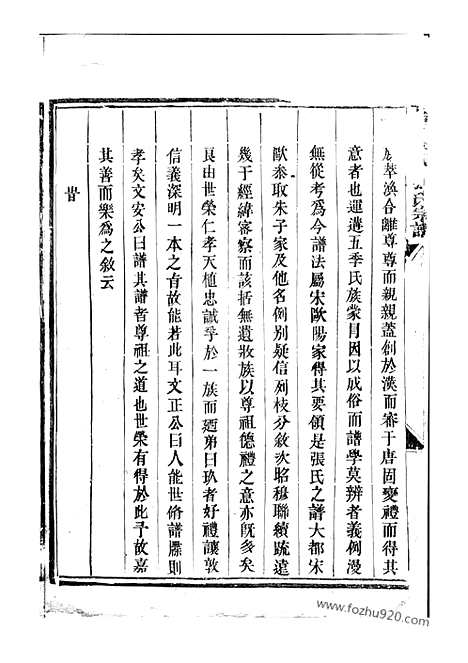 萃渙合離尊尊而親親蓋創於漢而審于唐固変禮而得其
意者也運遘五季氏族蒙目因以成俗而譜學莫辨者義例漫
無從考為今譜法屬宋歐陽家得其要領是張氏之譜大都宋
歐叅取朱子家及他名例別疑信列枝分敘次昭穆聯續疏遠
幾于經緯宻察而該括無遺收族以尊祖德禮之意亦旣多矣
良由世榮仁孝天植忠誠孚於一族而廼弟曰玖者好禮讓敦
信義深明一本之旨故能若此耳文正公曰人能世脩譜牒則
孝矣文安公曰譜其譜者尊祖之道也世榮有得於此予故嘉
其善而樂為之敘云
昔
氏宗譜
www.fozhu920.com